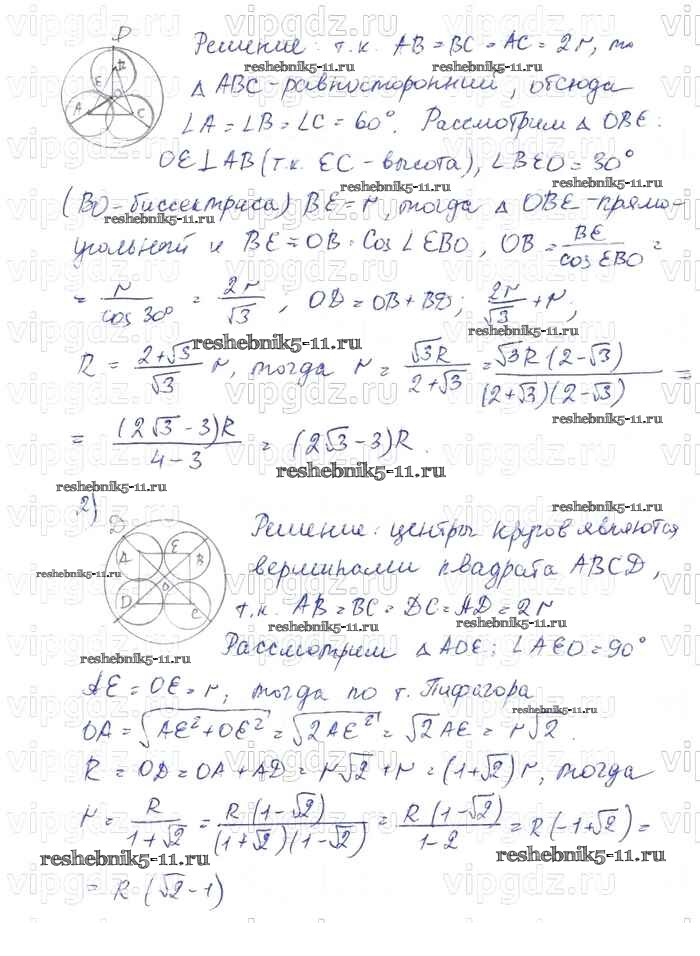 Решение: т.к. AB = BC = AC = 2r, то
△ ABC - равносторонний, отсюда
∠A = ∠B = ∠C = 60°. Рассмотрим △ OBE:
OE ⊥ AB (т.к. EC - высота), ∠BEO = 30°
(BO - биссектриса) BE = r, тогда △ OBE - прямо-
угольный и BE = OB · cos ∠EBO, OB = BE / cos EBO =
= r / cos 30° = 2r / √3; OD = OB + BD; 2r / √3 + r;
R = (2+√3) / √3 r, тогда r = √3R / (2+√3) = √3R (2-√3) / (2+√3)(2-√3) =
= (2√3 - 3)R / (4-3) = (2√3 - 3)R.
2)
Решение: центры кругов являются
вершинами квадрата ABCD,
т.к. AB = BC = DC = AD = 2r
Рассмотрим △ AOE: ∠AEO = 90°
AE = OE = r, тогда по т. Пифагора
OA = √(AE² + OE²) = √(2AE²) = √2AE = r√2.
R = OD = OA + AD = r√2 + r = (1+√2)r, тогда
r = R / (1+√2) = R (1-√2) / (1+√2)(1-√2) = R (1-√2) / (1-2) = R(-1+√2) =
= R · (√2 - 1)
D
E
A
C
D
A
E
B
O
D
C
reshebnik5-11.ru
vipgdz.ru